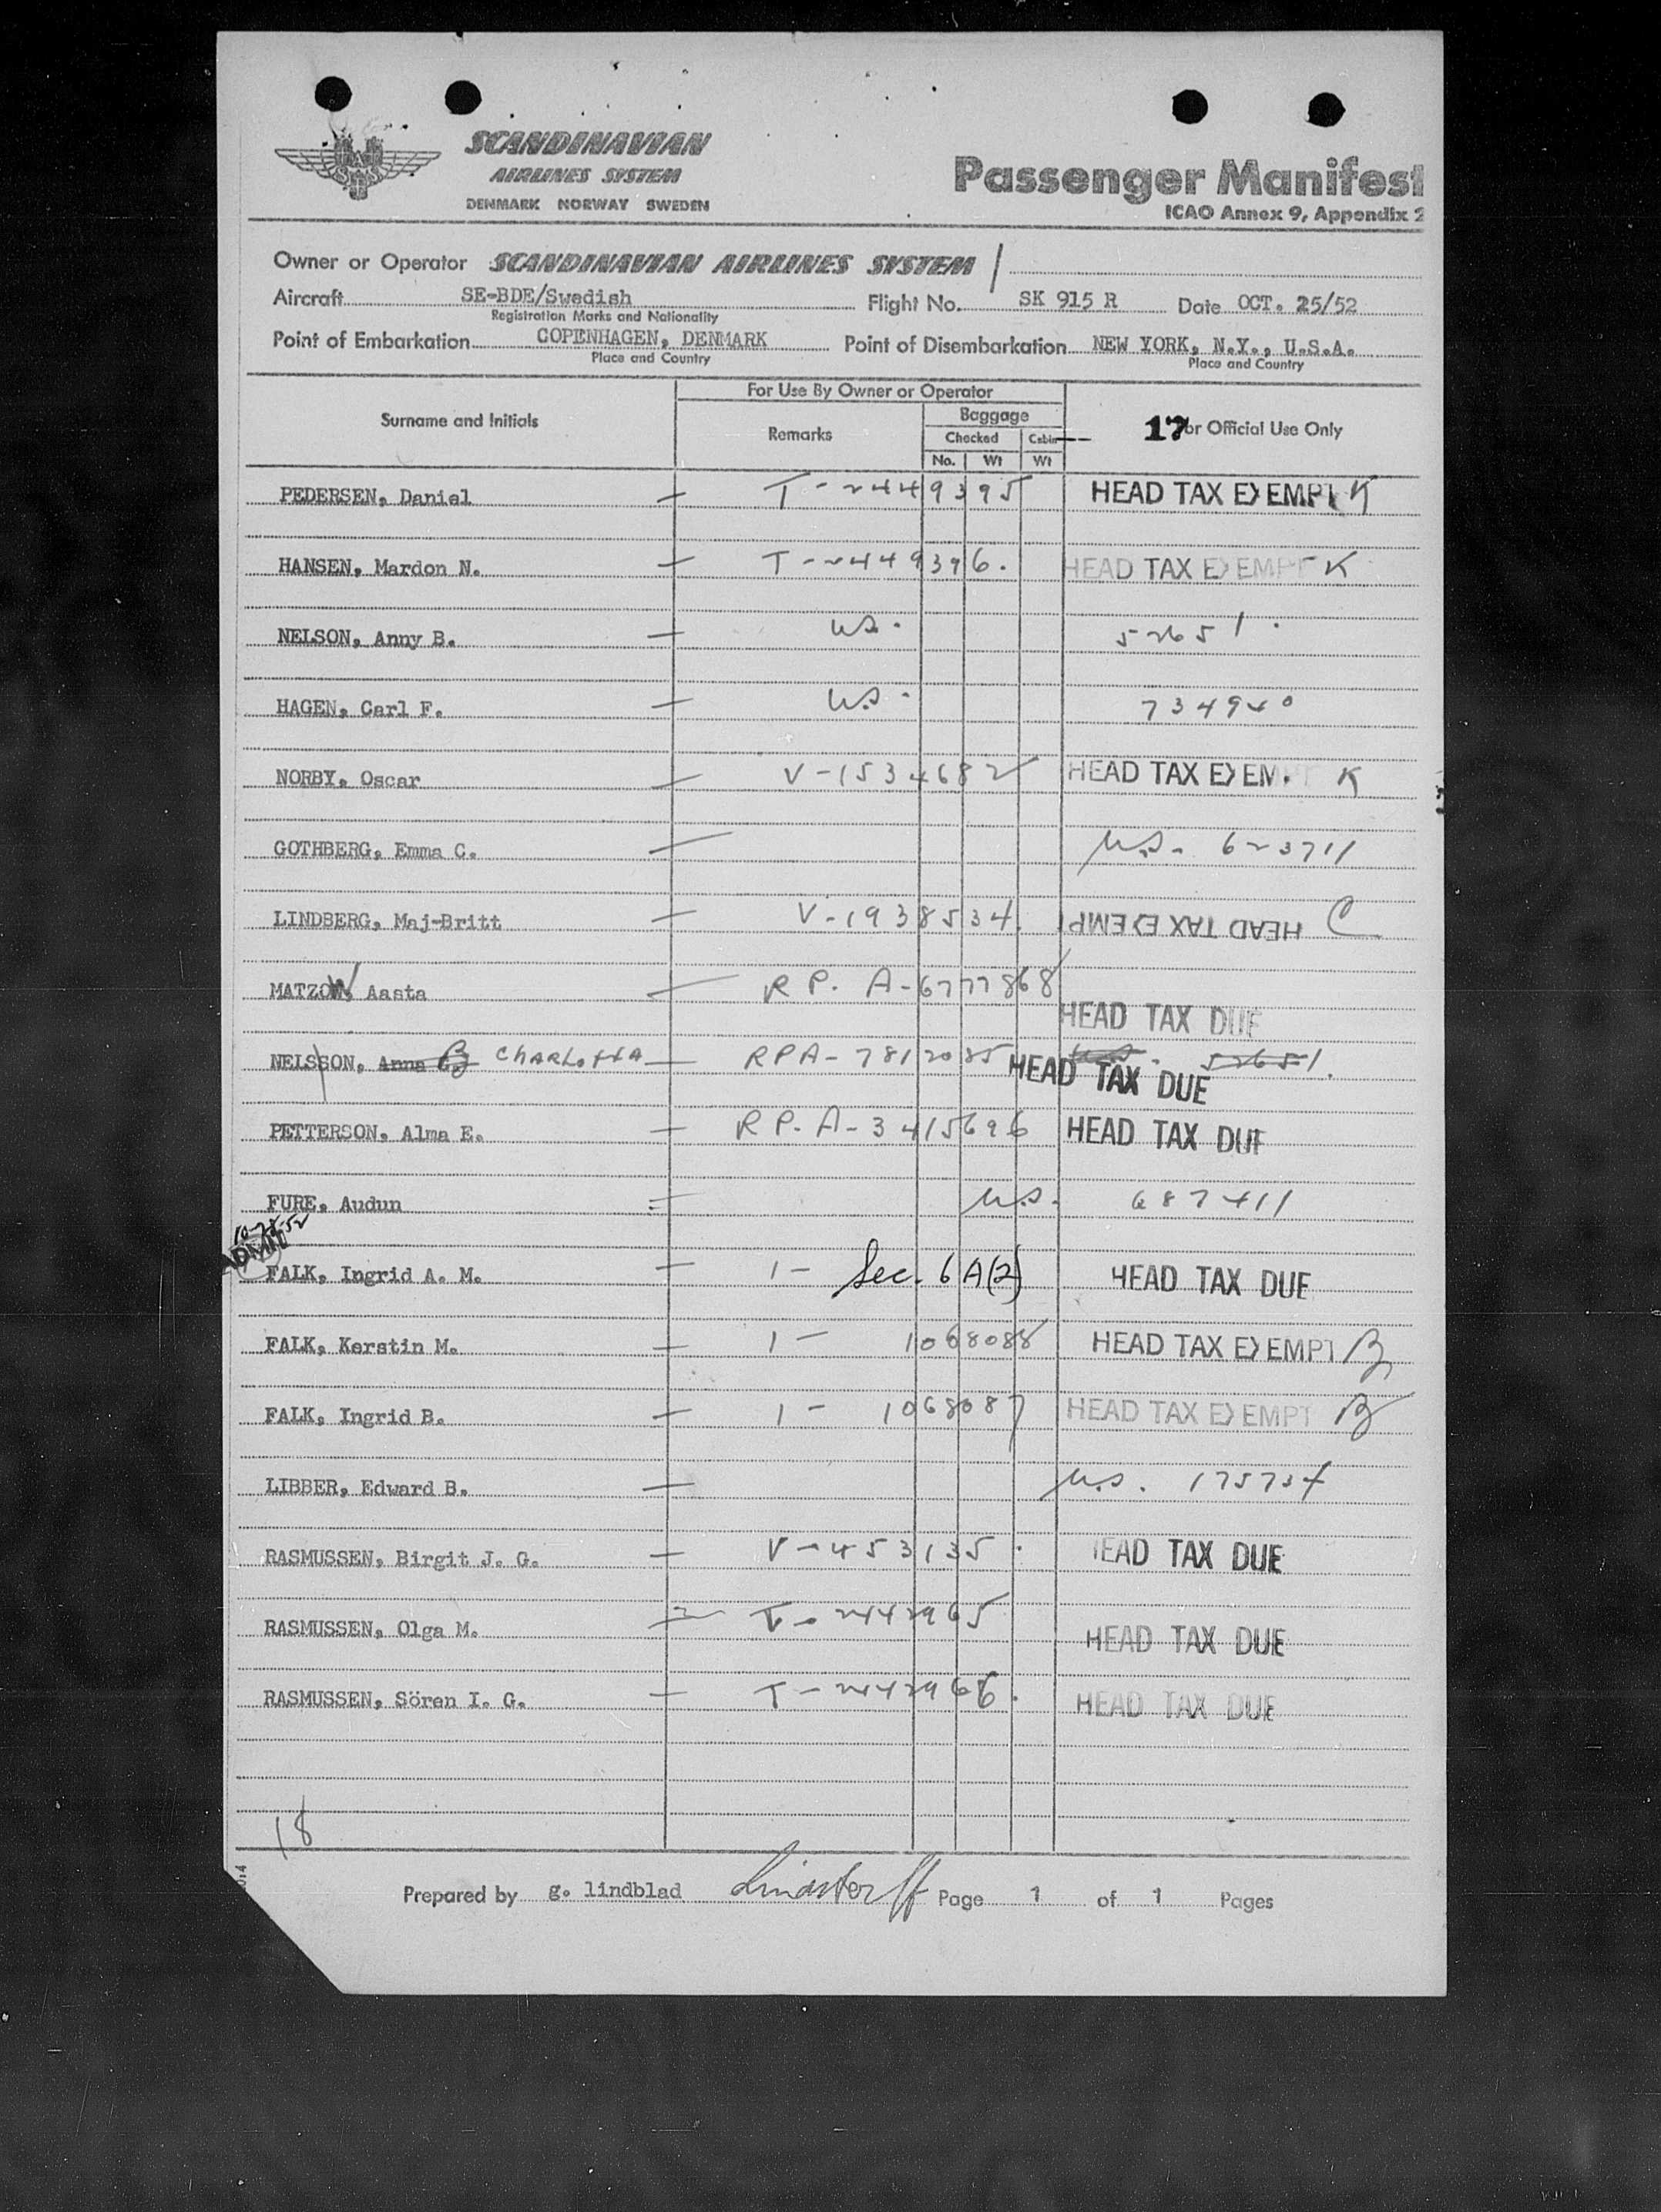 SCANDINAVIAN
AIRLINES SYSTEM
DENMARK NORWAY SWEDEN
Passenger Manifest
ICAO Annex 9, Appendix 2
Owner or Operator SCANDINAVIAN AIRLINES SYSTEM
Aircraft SE-BDE/Swedish Flight No. SK 915 R Date OCT. 25/52
Registration Marks and Nationality
Point of Embarkation COPENHAGEN, DENMARK Point of Disembarkation NEW YORK, N.Y., U.S.A.
Place and Country Place and Country
For Use By Owner or Operator
Surname and Initials Remarks Baggage 17 or Official Use Only
Checked Cabin
No. Wt Wt
PEDERSEN, Daniel — T-2449395 HEAD TAX EXEMPT K
HANSEN, Mardon N. — T-2449396. HEAD TAX EXEMPT K
NELSON, Anny B. — U.S. 52651.
HAGEN, Carl F. — U.S. 734940
NORBY, Oscar — V-1534682 HEAD TAX EXEM K
GOTHBERG, Emma C. — U.S. 623711
LINDBERG, Maj-Britt — V-1938534. HEAD TAX EXEMPT C
MATZOW, Aasta — RP. A-6777868
HEAD TAX DUE
NELSSON, Anna B CHARLOTTA — RPA-7812085 U.S. 52651.
HEAD TAX DUE
PETTERSON, Alma E. — RP. A-3415696 HEAD TAX DUE
FURE, Audun = U.S. 687411
ADMIT
FALK, Ingrid A. M. — 1- Sec. 6 A(2) HEAD TAX DUE
FALK, Kerstin M. — 1- 1068088 HEAD TAX EXEMPT B
FALK, Ingrid B. — 1- 1068087 HEAD TAX EXEMPT B
LIBBER, Edward B. — U.S. 175734
RASMUSSEN, Birgit J. G. — V-453135. HEAD TAX DUE
RASMUSSEN, Olga M. — T-2442965 HEAD TAX DUE
RASMUSSEN, Sören I. G. — T-2442966. HEAD TAX DUE
18
Prepared by g. lindblad Page 1 of 1 Pages